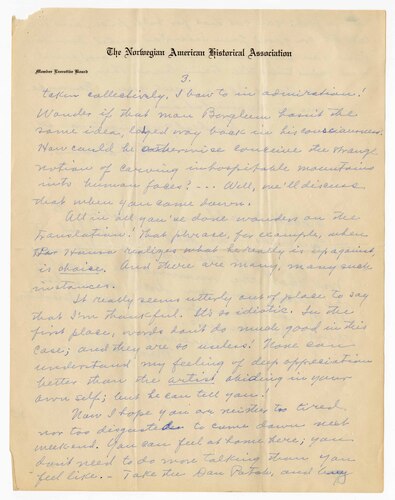 The Norwegian American Historical Association
Member Executive Board
3.
taken collectively, I bow to in admiration!
Wonder if that man Borglum hasn't the
same idea, lodged way back in his consciousness.
How could he otherwise conceive the strange
notion of carving inhospitable mountains
into human faces? ... Well, we'll discuss
that when you come down.
All in all you've done wonders on the
translation! That phrase, for example, when
Per Hansa realizes what he really is up against,
is choice. And there are many, many such
instances.
It really seems utterly out of place to say
that I'm thankful. It's so idiotic. In the
first place, words don't do much good in this
case; and they are so useless! None can
understand my feeling of deep appreciation
better than the artist abiding in your
own self; but he can tell you!
Now I hope you are neither too tired
nor too disgusted to come down next
weekend. You can feel at home here; you
don't need to do more talking than you
feel like. - Take the Dan Patch, and